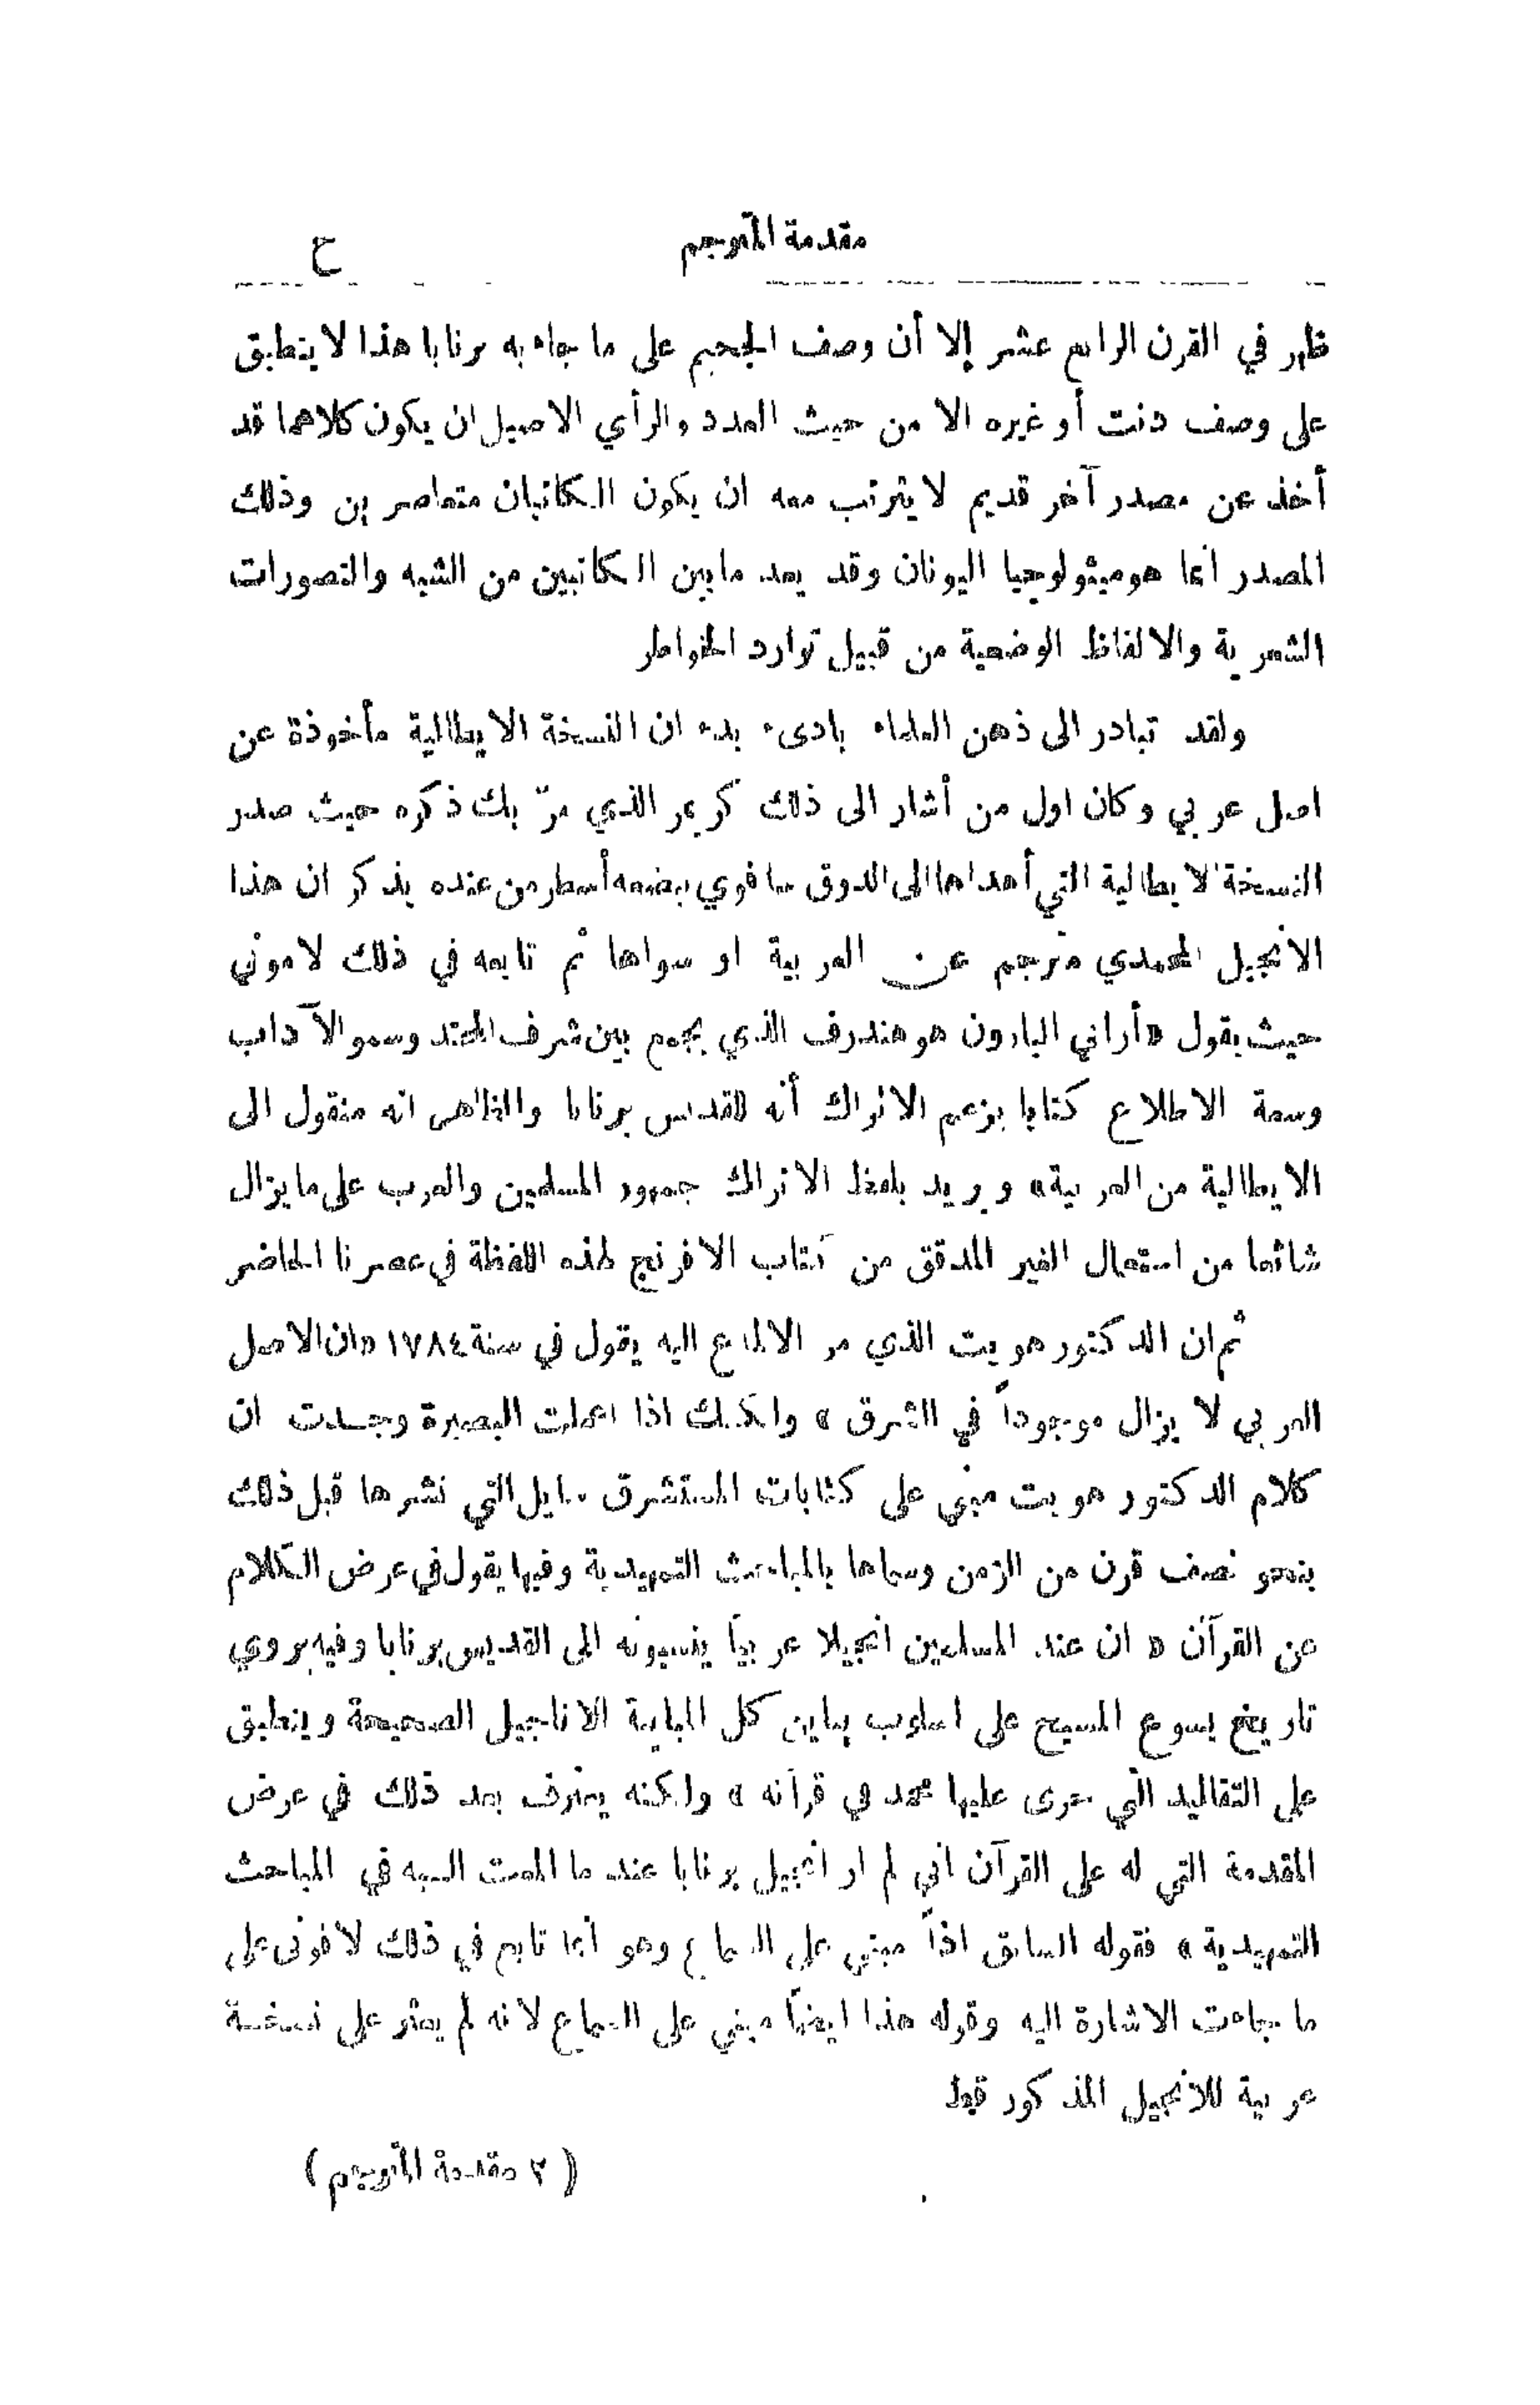 مقدمة المترجم
ح
ظهر في القرن الرابع عشر إلا أن وصف الجحيم على ما جاء به برنابا هذا لا ينطبق
على وصف دنت أو غيره الا من حيث العدد والرأي الاصيل ان يكون كلاهما قد
أخذ عن مصدر آخر قديم لا يترتب معه ان يكون الكاتبان متعاصرين وذلك
المصدر انما هو ميثولوجيا اليونان وقد يعد ما بين الكاتبين من الشبه والتصورات
الشعرية والالفاظ الوضعية من قبيل توارد الخواطر
ولقد تبادر الى ذهن العلماء بادىء بدء ان النسخة الايطالية مأخوذة عن
اصل عربي وكان اول من أشار الى ذلك كريمر الذي مرّ بك ذكره حيث صدر
النسخة الايطالية التي أهداها الى الدوق سافوي ببضعه أسطر من عنده يذكر ان هذا
الانجيل المحمدي مترجم عن العربية او سواها ثم تابعه في ذلك لاموني
حيث يقول «أراني البارون هوهندرف الذي يجمع بين شرف المحتد وسمو الآداب
وسعة الاطلاع كتابا يزعم الاتراك أنه للقديس برنابا والظاهر انه منقول الى
الايطالية من العربية» ويريد بلفظ الاتراك جمهور المسلمين والعرب على ما يزال
شائعا من استعمال الغير المدقق من كتاب الافرنج لهذه اللفظة في عصرنا الحاضر
ثم ان الدكتور هويت الذي مر الالماع اليه يقول في سنة ١٧٨٤ «ان الاصل
العربي لا يزال موجوداً في الشرق» ولكنك اذا اعملت البصيرة وجدت ان
كلام الدكتور هويت مبني على كتابات المستشرق سايل التي نشرها قبل ذلك
بنحو نصف قرن من الزمن وسماها بالمباحث التمهيدية وفيها يقول في عرض الكلام
عن القرآن «ان عند المسلمين انجيلا عربياً ينسبونه الى القديس برنابا وفيه يروي
تاريخ يسوع المسيح على اسلوب يباين كل المباينة الاناجيل الصحيحة وينطبق
على التقاليد التي جرى عليها محمد في قرآنه» ولكنه يعترف بعد ذلك في عرض
المقدمة التي له على القرآن اني لم ار انجيل برنابا عند ما المعت اليه في المباحث
التمهيدية» فقوله السابق اذاً مبني على السماع وهو انما تابع في ذلك لافونى على
ما جاءت الاشارة اليه وقوله هذا ايضاً مبني على السماع لانه لم يعثر على نسخة
عربية للانجيل المذكور قط
(٢ مقدمة المترجم)